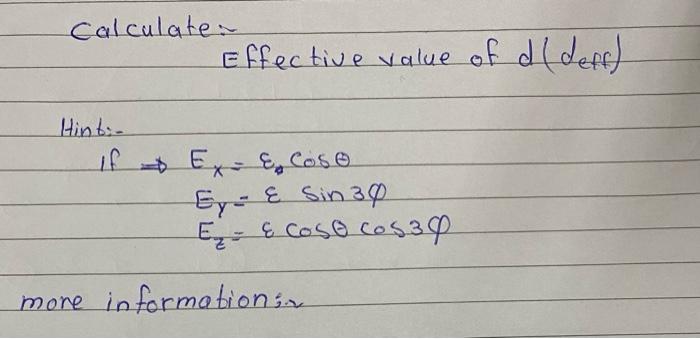 Calculate:~
Effective value of d(deff)
Hint:-
if ⇒ Ex = ε₀ Cosθ
Ey = ε Sin3φ
Ez = ε Cosθ Cos3φ
more information:~